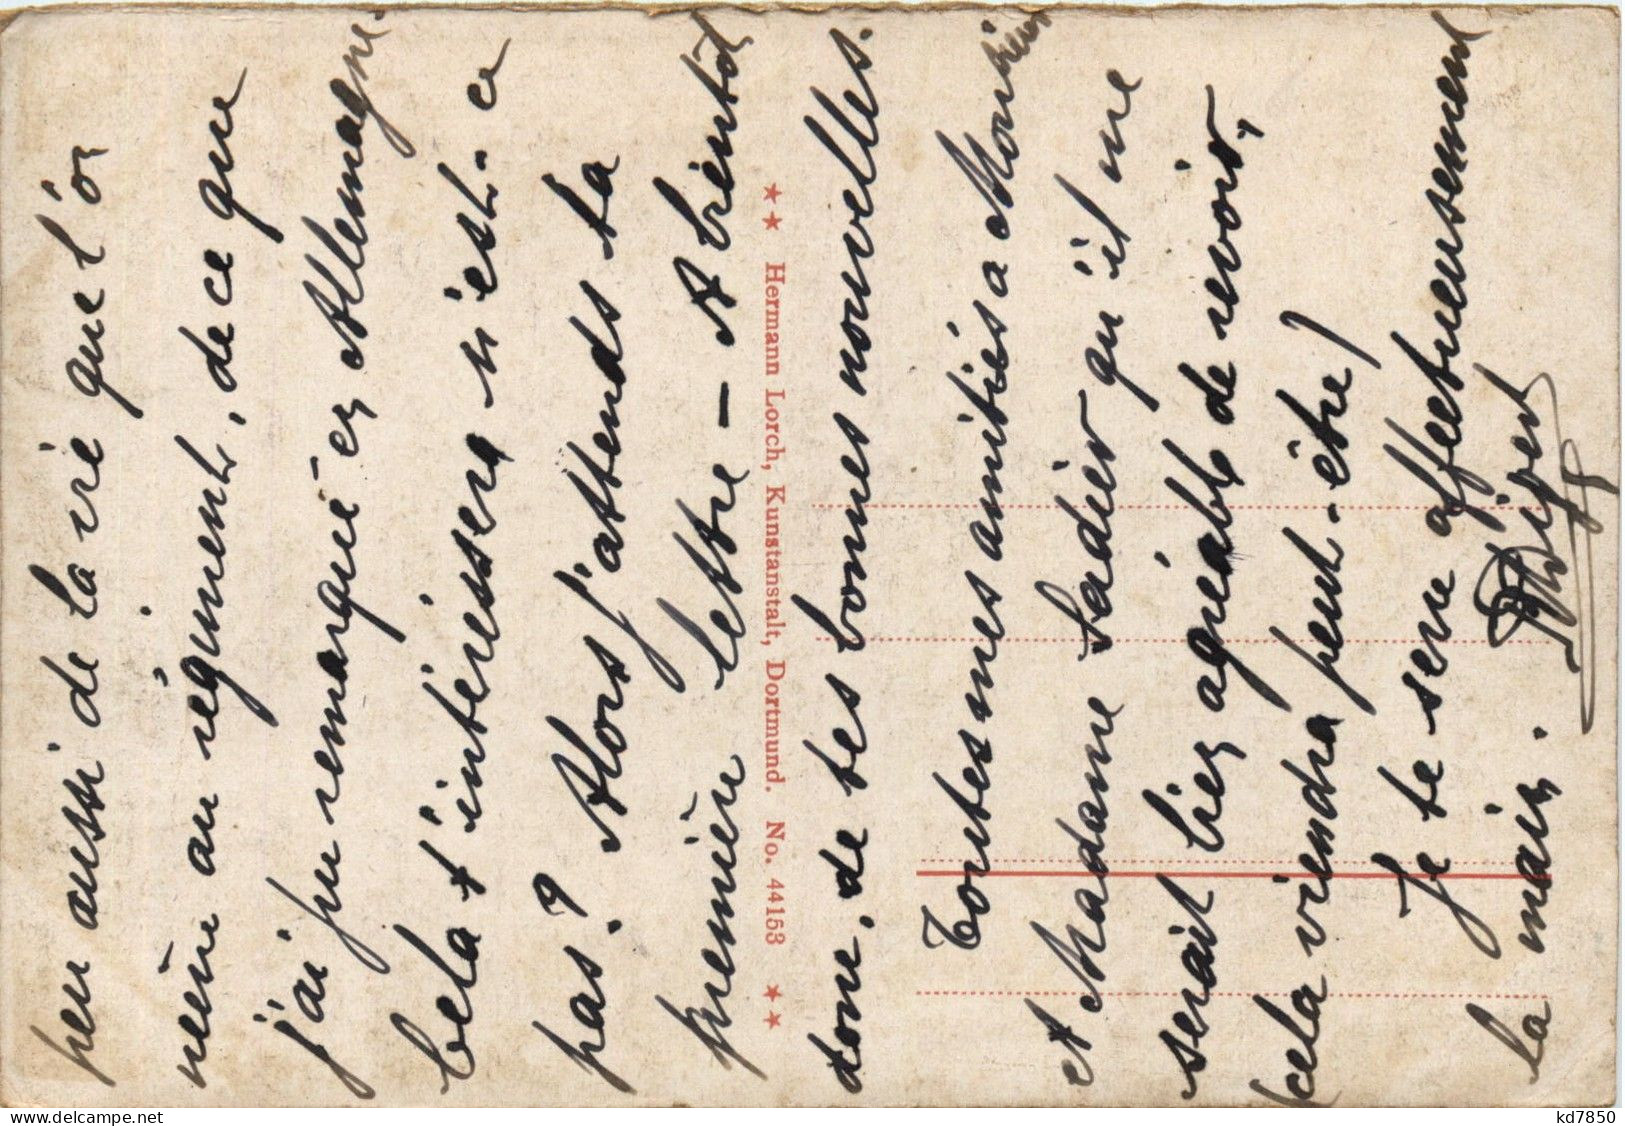 peu aussi de la vie que l'on
mène au régiment, de ce que
j'ai pu remarqué en Allemagne
Cela t'intéressera n'est-ce
pas? Alors j'attends ta
première lettre - A bientôt
donc, de tes bonnes nouvelles.
Toutes mes amitiés a Monsieur
et Madame Ladier qu'il me
serait bien agréable de revoir,
(cela viendra peut-être)
Je te serre affectueusement
la main.
★★ Hermann Lorch, Kunstanstalt, Dortmund. No. 44153 ★★
kd7850
delcampe.net